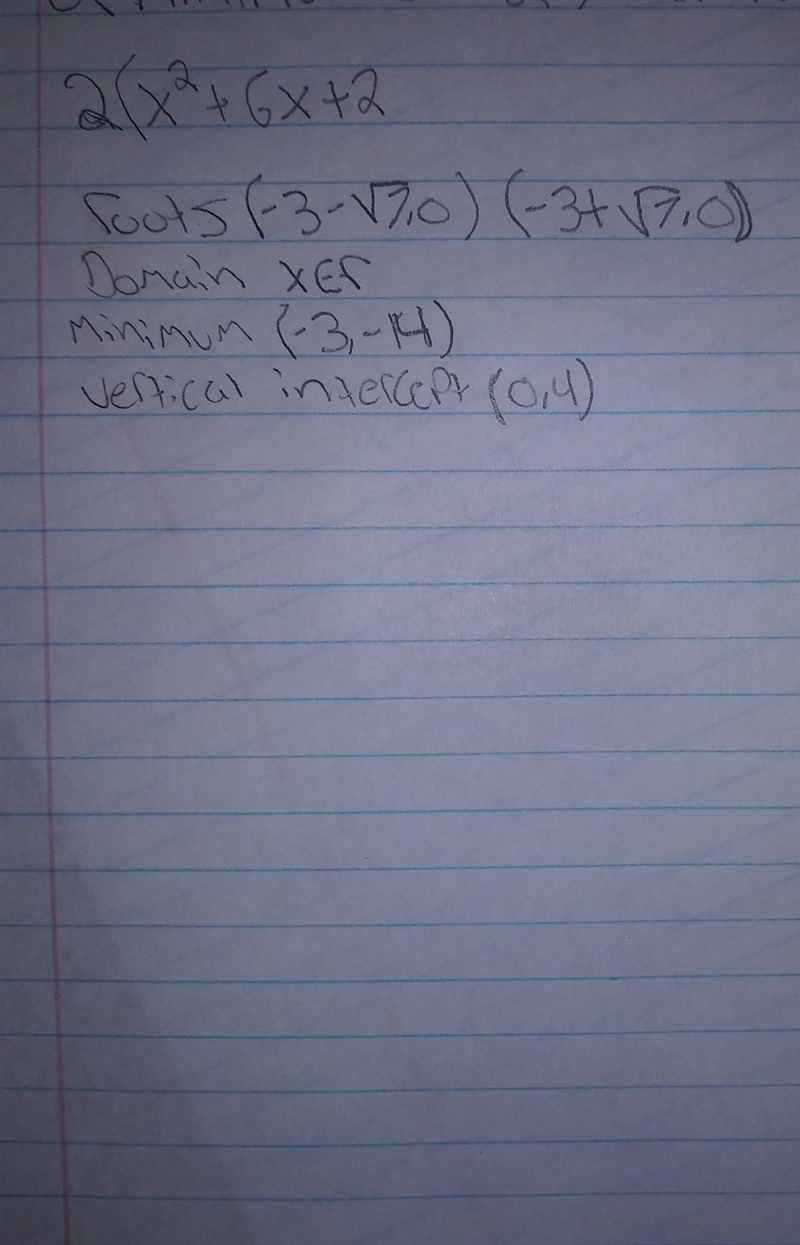 2(x²+6x+2
roots (-3-√7,0) (-3+√7,0))
Domain x∈r
minimum (-3,-14)
vertical intercept (0,4)